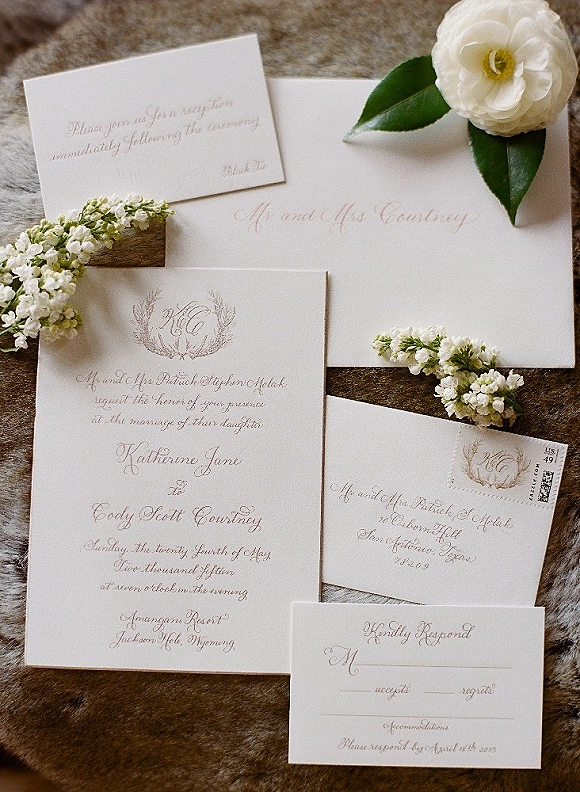 Please join us for a reception
immediately following the ceremony
Black Tie
Mr and Mrs Courtney
K&C
Mr and Mrs Patrick Stephen Molak
request the honor of your presence
at the marriage of their daughter
Katherine Jane
to
Cody Scott Courtney
Sunday the twenty fourth of May
Two thousand fifteen
at seven o'clock in the evening
Amangani Resort
Jackson Hole, Wyoming
K&C
US
49
Mr and Mrs Patrick S Molak
10 Osborne Hill
San Antonio, Texas
78209
Kindly Respond
M
accepts regrets
Accommodations
Please respond by April 18th 2015